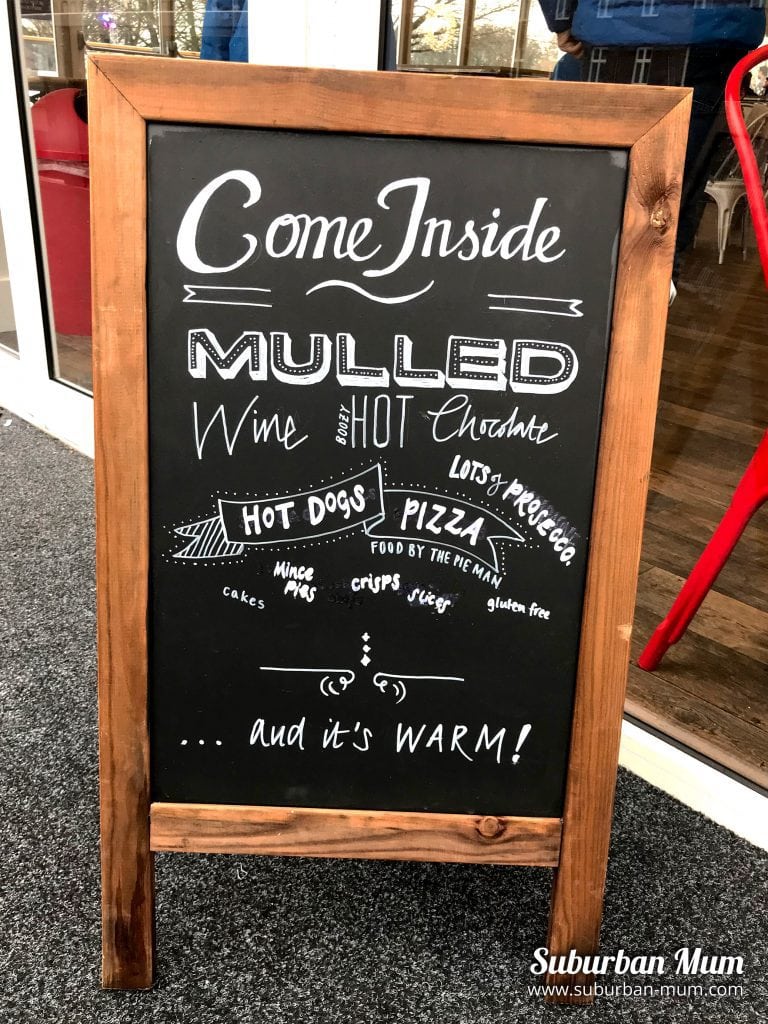 Come Inside
MULLED
Wine BOOZY HOT Chocolate
LOTS of PROSECCO.
HOT DOGS PIZZA
FOOD BY THE PIE MAN
cakes Mince pies crisps slices gluten free
... and it's WARM!
Suburban Mum
www.suburban-mum.com